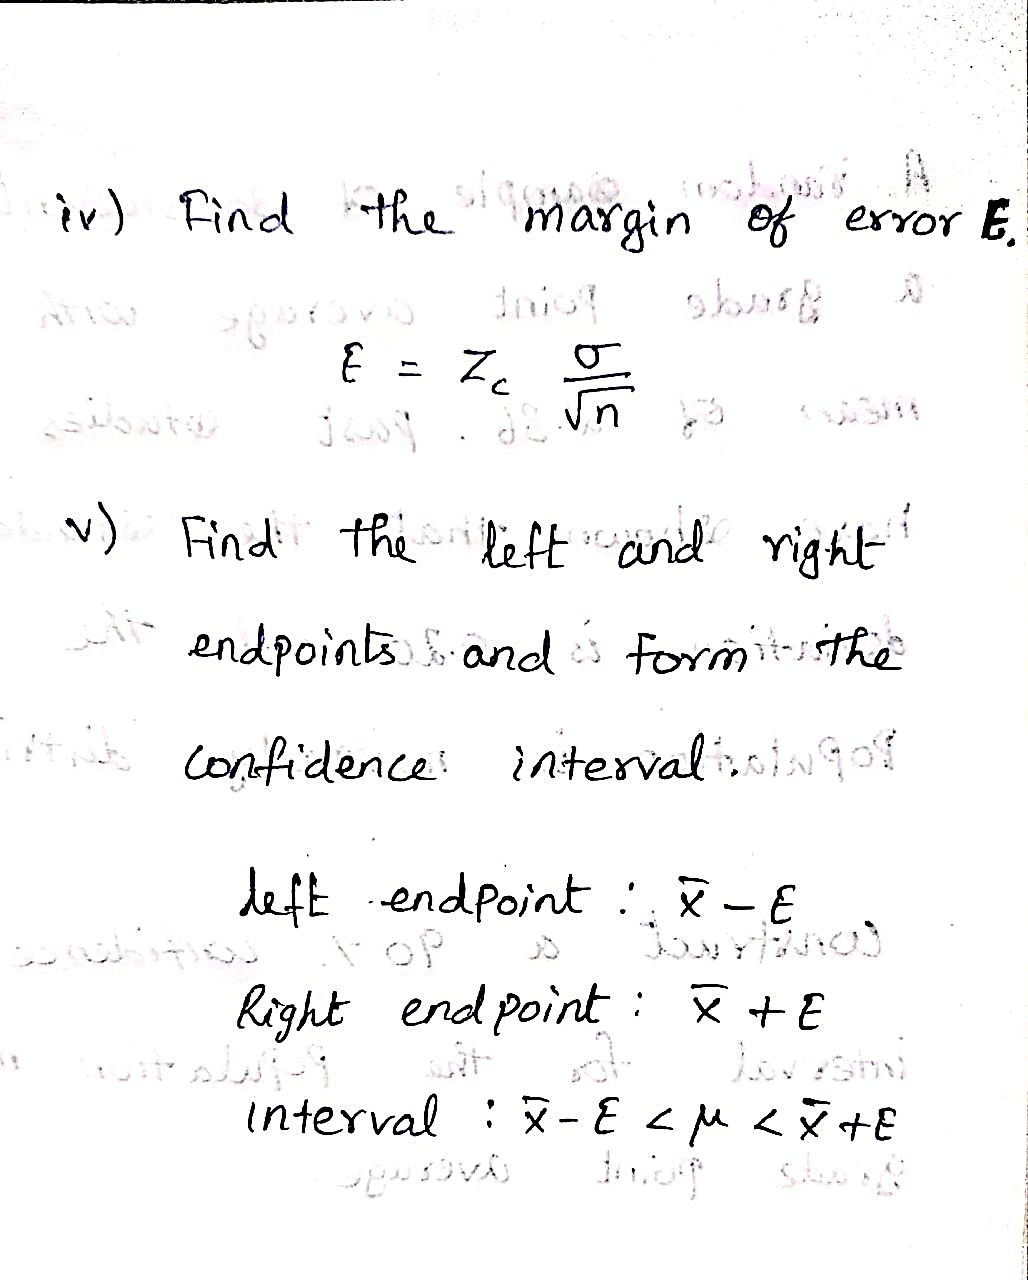 iv) Find the margin of error E.
E = Zc σ/√n
v) Find the left and right
endpoints and form the
confidence interval.
left endpoint : x̄ - E
Right endpoint : x̄ + E
interval : x̄ - E < μ < x̄ + E